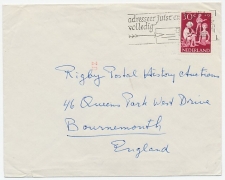 adresseer juist en
volledig
30c
NEDERLAND
Rigby Postal History Auctions
46 Queens Park West Drive
Bournemouth
England